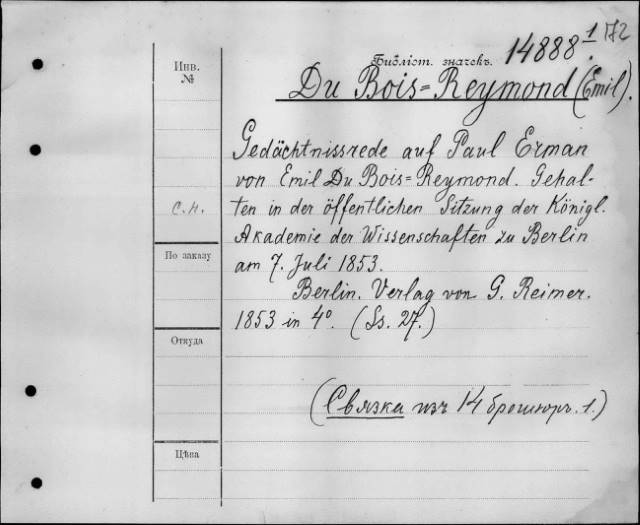 Библіот. значекъ. 14888 1/172
Инв.
№
Du Bois=Reymond (Emil).
Gedächtnissrede auf Paul Erman
von Emil Du Bois=Reymond. Gehal-
ten in der öffentlichen Sitzung der Königl.
С.н.
Akademie der Wissenschaften zu Berlin
По заказу
am 7. Juli 1853.
Berlin. Verlag von G. Reimer.
1853 in 4°. (Ss. 27.)
Откуда
(Связка изъ 14 брошюръ. 1.)
Цѣна